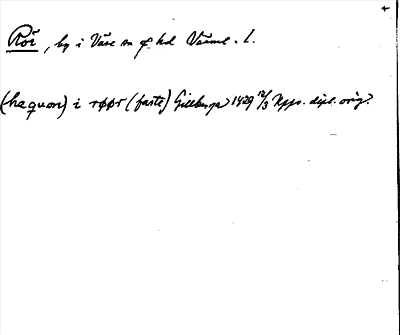 Rör, by i Väse sn o hd Värml. l.
(haquon) i røør (faste) Gillberga 1429 12/3 Upps. dipl. orig.